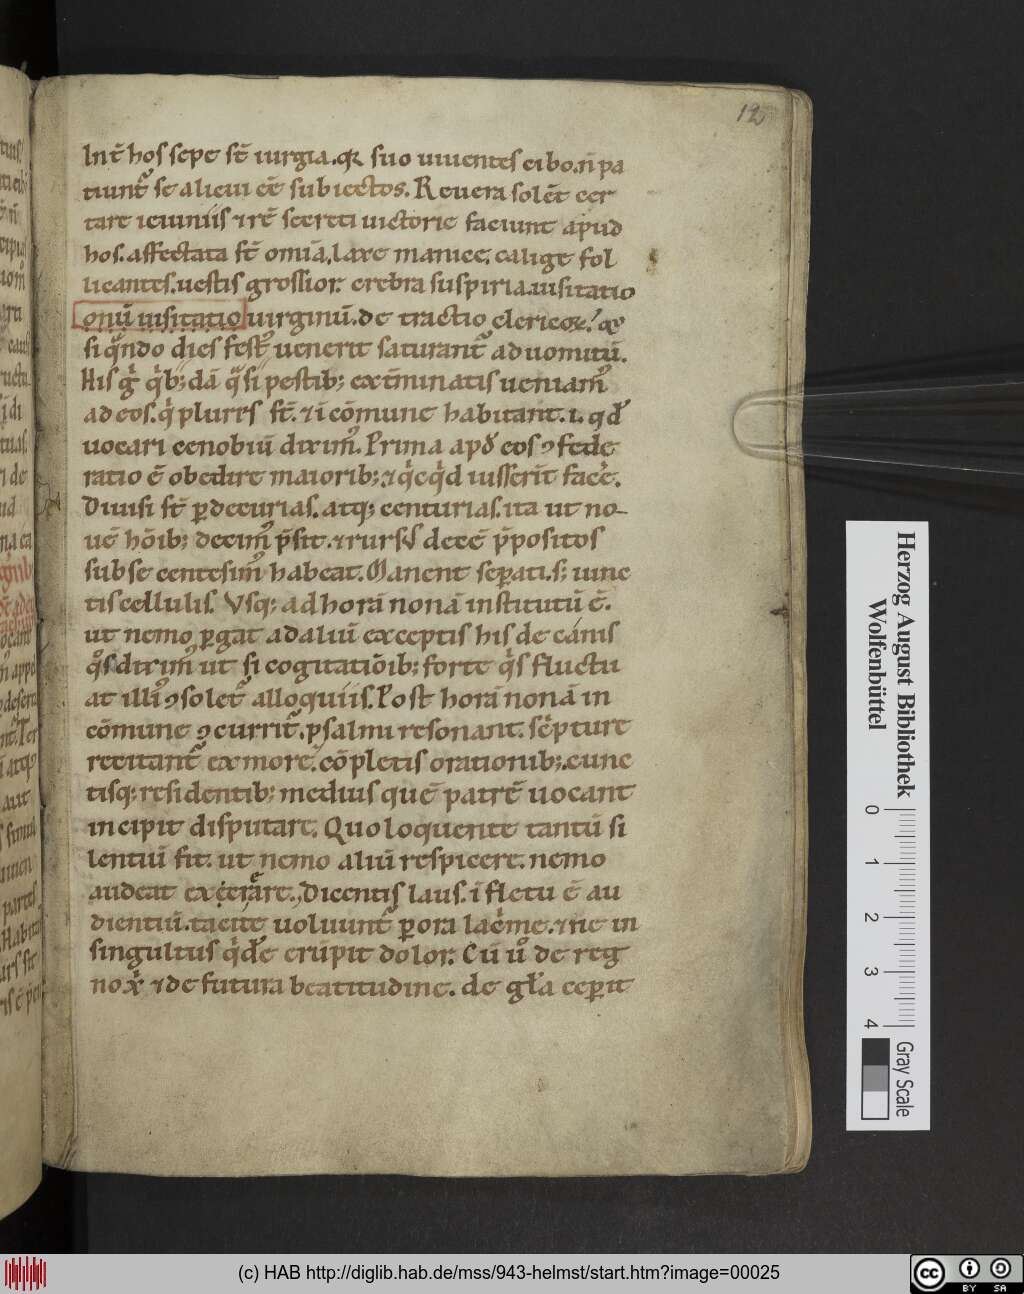 12
Int̄ hos sepe st̄ iurgia. q̄ suo uiuentes cibo. n̄ pa
tiunt᷑ se alicui eē subiectos. Reuera solēt cer
tare ieiuniis ⁊ rē secreti uictorie faciunt apud
hos. affectata st̄ omīa, laxe manice, calige fol
licantes. uestis grossior. crebra suspiria. uisitatio
onū uisitatio uirginū. de tractio clericoꝝ. ⁊
si qͣndo dies fest᷑ uenerit saturant᷑ ad uomitū.
His gͥ qͥb; dā qͣsi pestib; extͥminatis ueniam᷑
ad eos. qͥ plures st̄. ⁊ ī cōmune habitant. i. qd̓
uocari cenobiū dixim᷑. Prima apd̓ eos ꝯfede
ratio ē obedire maiorib;. ⁊ qͥcqͥd iusserīt facͤe.
Diuisi st̄ ꝑ decurias. atq; centurias. ita ut no-
uē hōib; decim᷑ p̄sit. ⁊ rursꝰ decē p̄positos
sub se centesim᷑ habeat. Manent seꝑati. s; iunc
tis cellulis. Vsq; ad horā nonā institutū ē.
ut nemo ꝑgat ad aliū exceptis his decanis
qͦs dixim᷑ ut si cogitatiōib; forte qͥs fluctu
at illi᷑ ꝯsolet᷑ alloquiis. Post horā nonā in
cōmune ꝯcurrit᷑. psalmi resonant. scͥpture
recitant᷑ ex more. cōpletis orationib;. cunc
tisq; residentib; medius quē patrē uocant
incipit disputare. Quo loquente tantū si
lentiū fit. ut nemo aliū respicere. nemo
audeat excreare. Dicentis laus. ī fletu ē au
dientiū. tacite uoluunt᷑ ꝑ ora lacͥme. ⁊ ne in
singultus qͥdē erūpit dolor. Cū u᷑ de reg
no xͥ ⁊ de futura beatitudine. de gl̓a ceꝑit
Herzog August Bibliothek
Wolfenbüttel
0 1 2 3 4
Gray Scale
(c) HAB http://diglib.hab.de/mss/943-helmst/start.htm?image=00025
cc BY SA